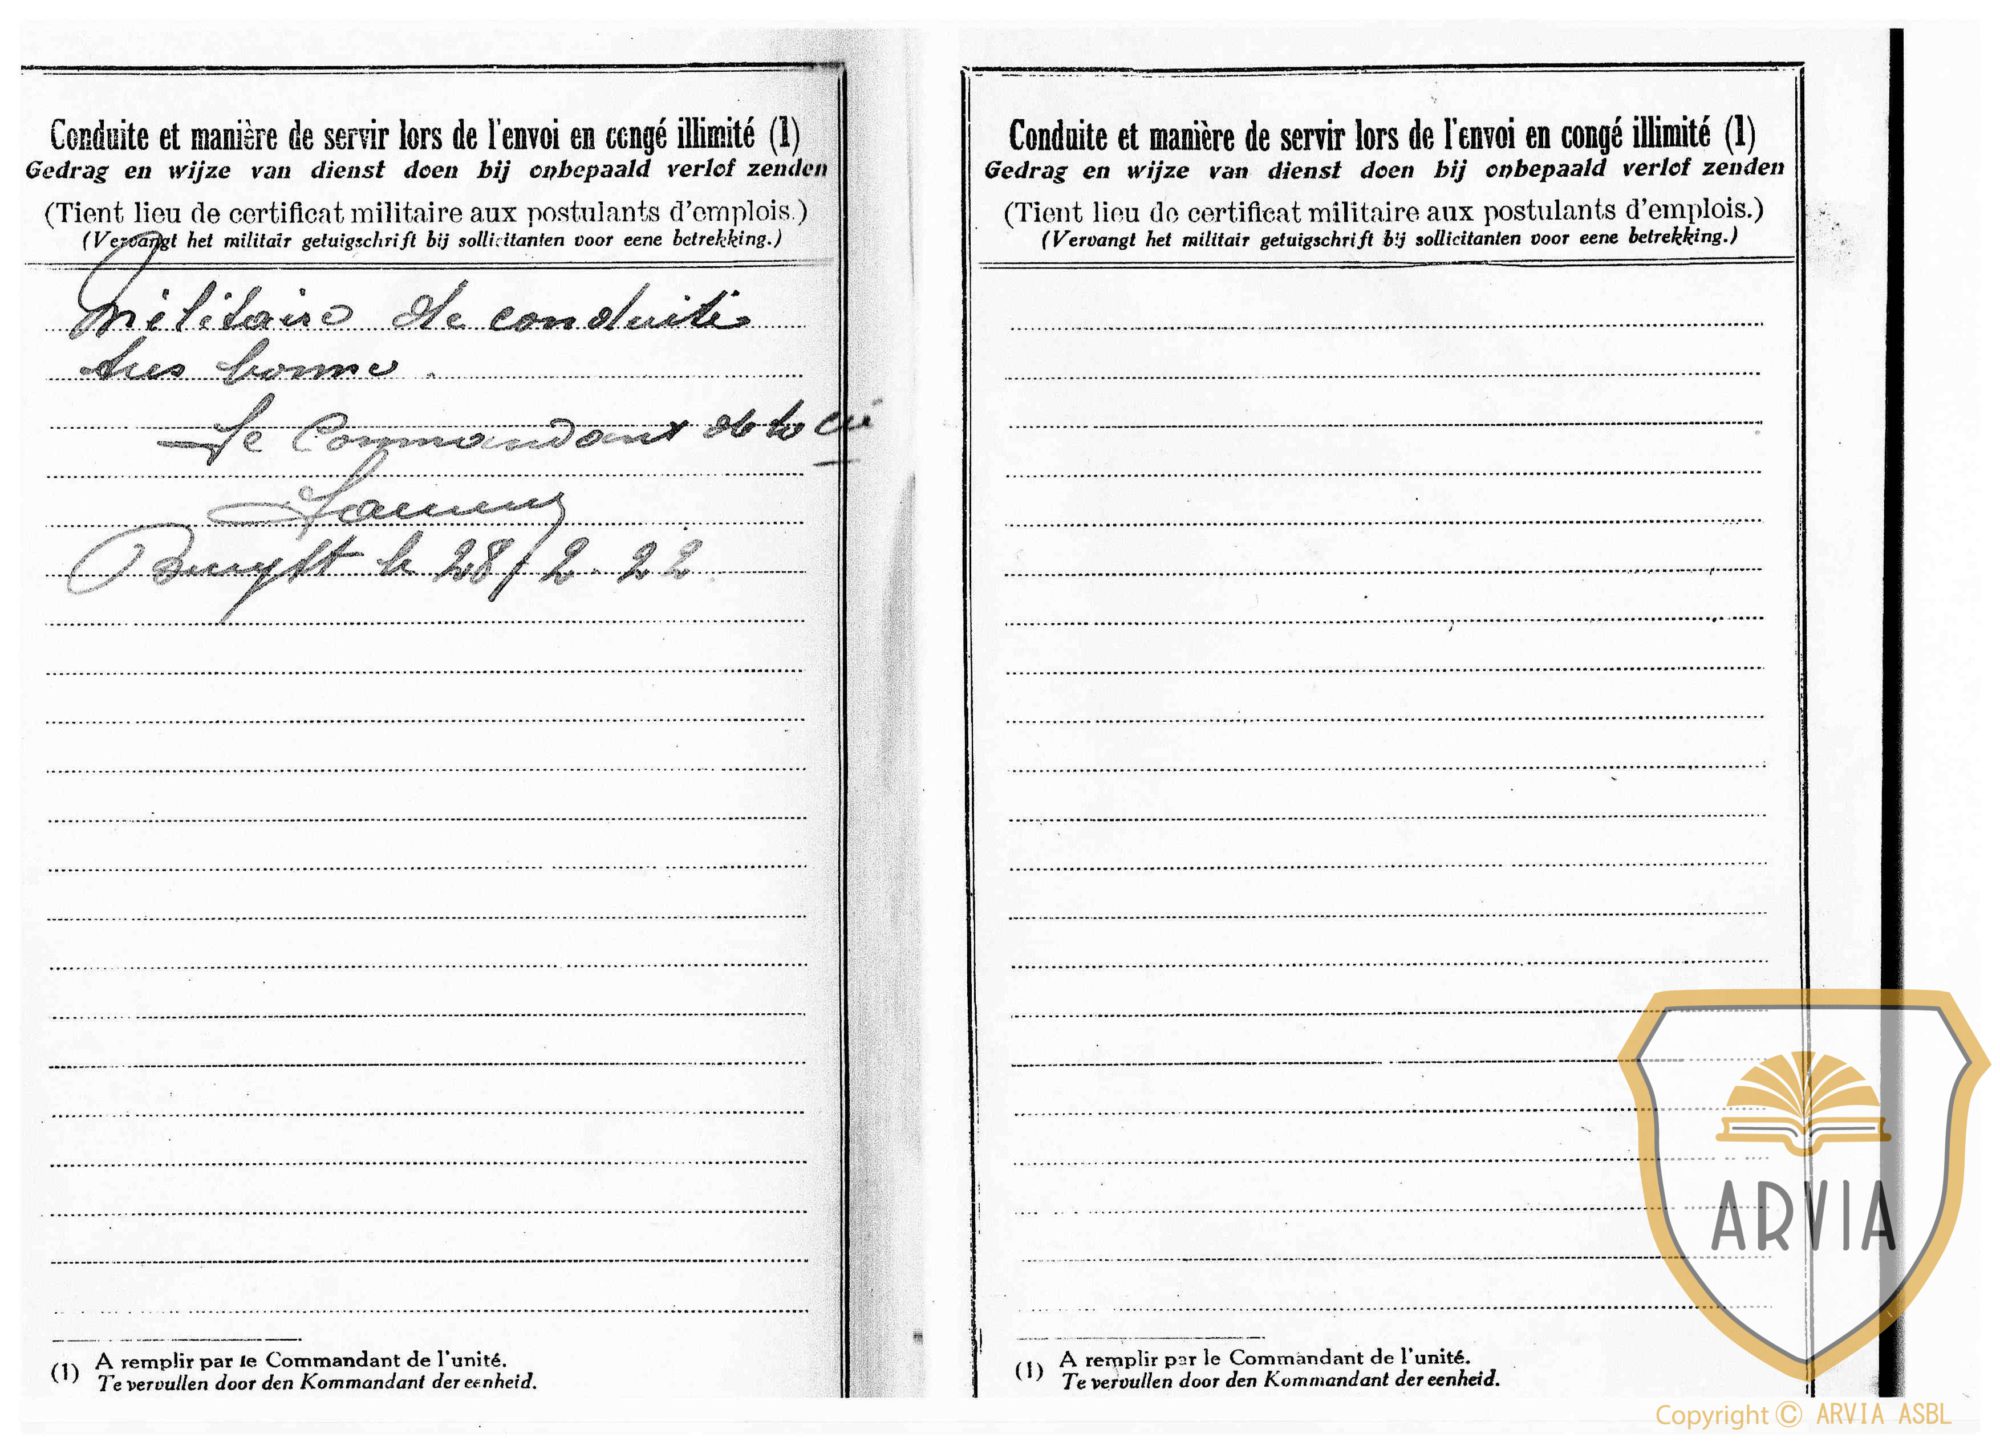 Conduite et manière de servir lors de l'envoi en congé illimité (1)
Gedrag en wijze van dienst doen bij onbepaald verlof zenden
(Tient lieu de certificat militaire aux postulants d'emplois.)
(Vervangt het militair getuigschrift bij sollicitanten voor eene betrekking.)
Militaire de conduite
tres bonne.
Le Commandant de la Cie
le 28/2-22.
(1) A remplir par le Commandant de l'unité.
Te vervullen door den Kommandant der eenheid.
Conduite et manière de servir lors de l'envoi en congé illimité (1)
Gedrag en wijze van dienst doen bij onbepaald verlof zenden
(Tient lieu de certificat militaire aux postulants d'emplois.)
(Vervangt het militair getuigschrift bij sollicitanten voor eene betrekking.)
(1) A remplir par le Commandant de l'unité.
Te vervullen door den Kommandant der eenheid.
ARVIA
Copyright © ARVIA ASBL